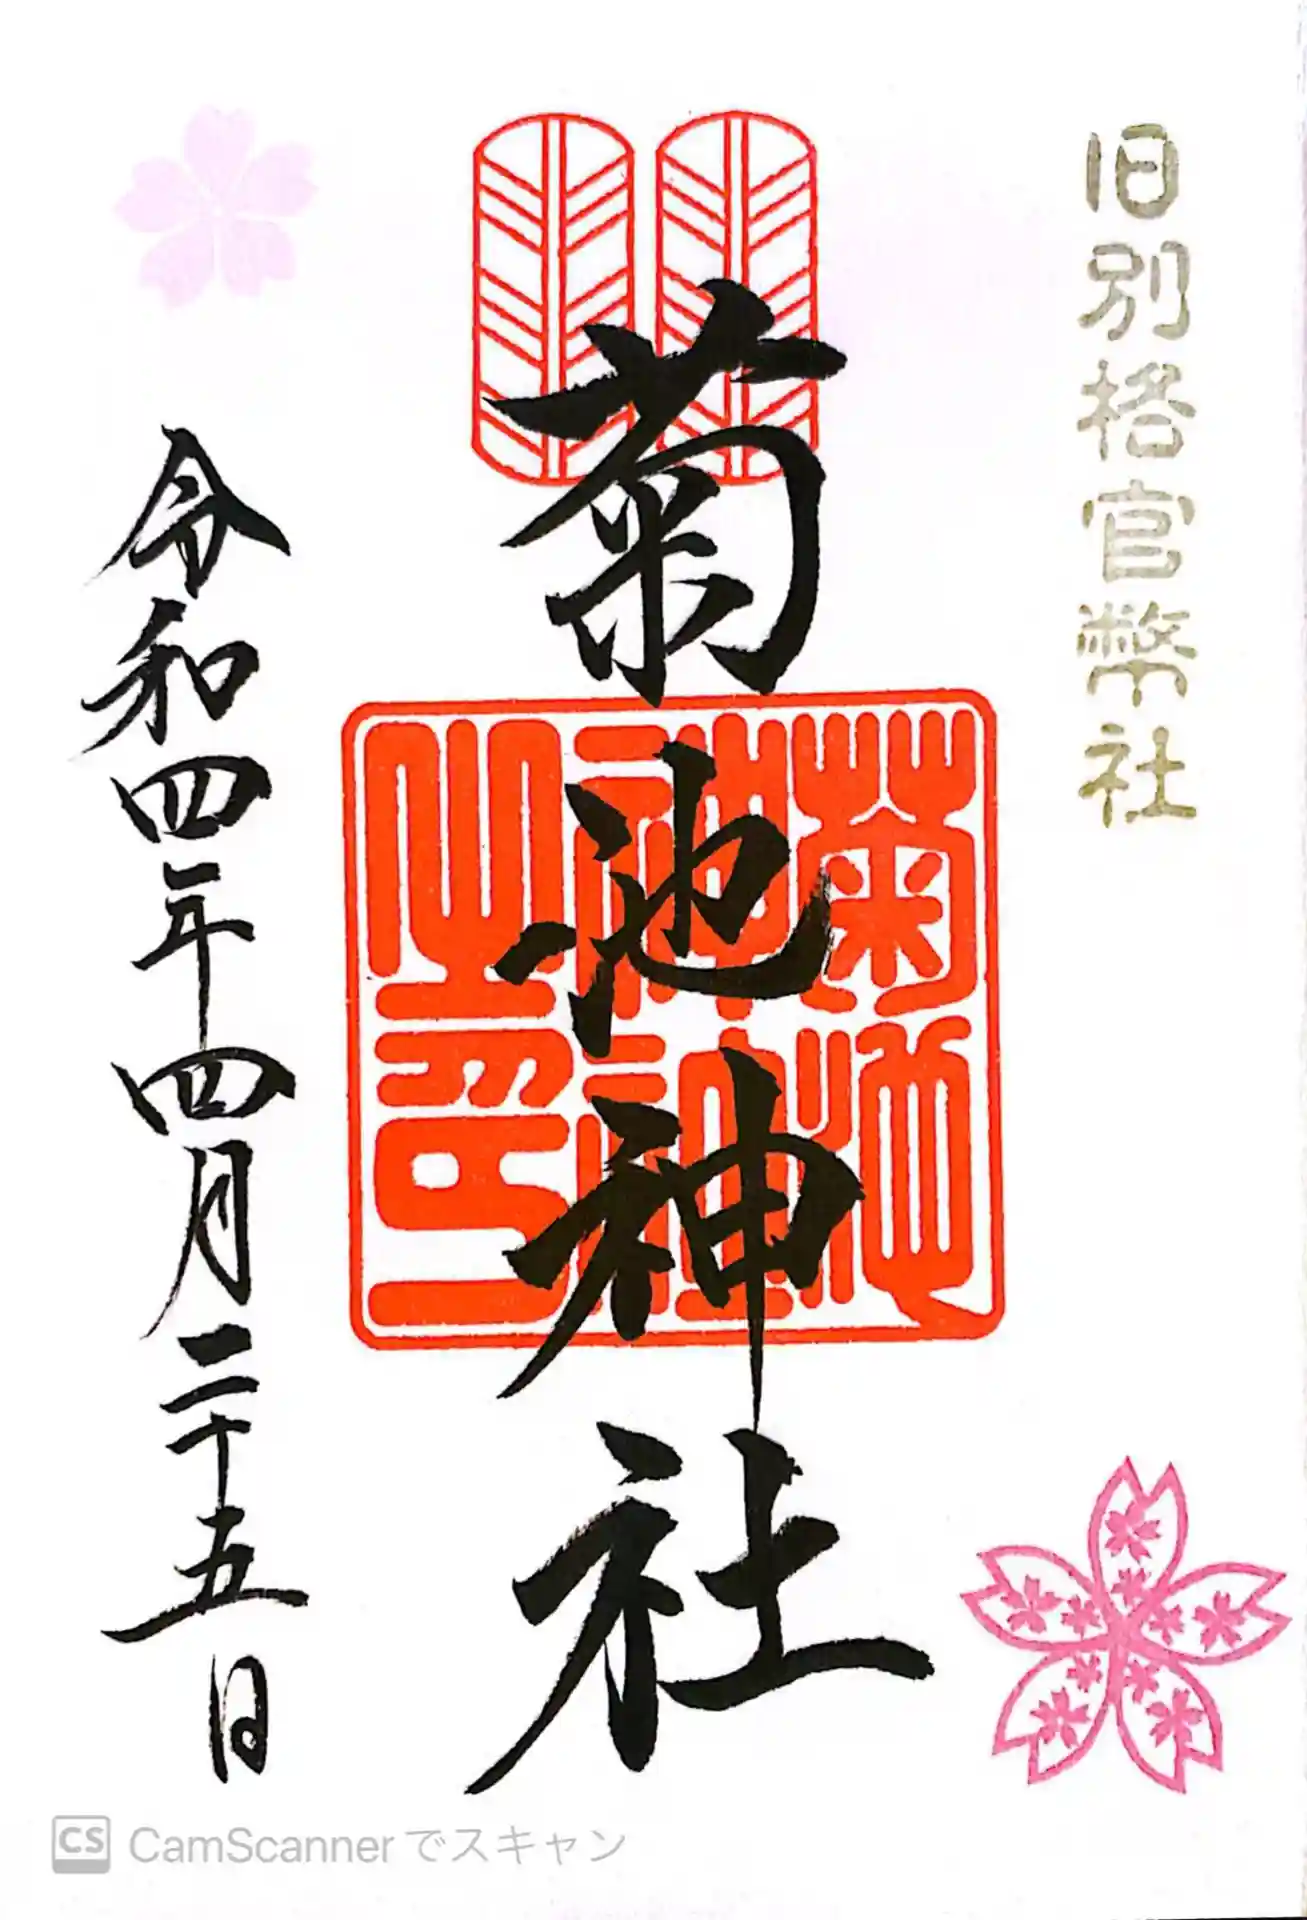 旧別格官幣社
菊池神社
菊池神社之印
令和四年四月二十五日
CS CamScannerでスキャン